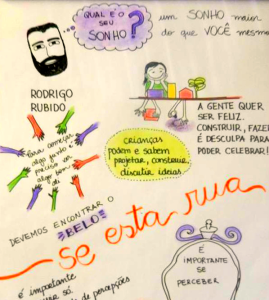 QUAL É O
SEU
SONHO ?
um SONHO maior
do que VOCÊ mesmo
RODRIGO
RUBIDO
Para começar
algo junto é
preciso ver
algo bom
A GENTE QUER
SER FELIZ.
CONSTRUIR, FAZE
É DESCULPA PARA
PODER CELEBRAR!
crianças
podem e sabem
projetar, construir,
discutir ideias.
DEVEMOS ENCONTRAR O
BELO
Se esta rua
É
IMPORTANTE
SE
PERCEBER
é importante
só.
de percepções